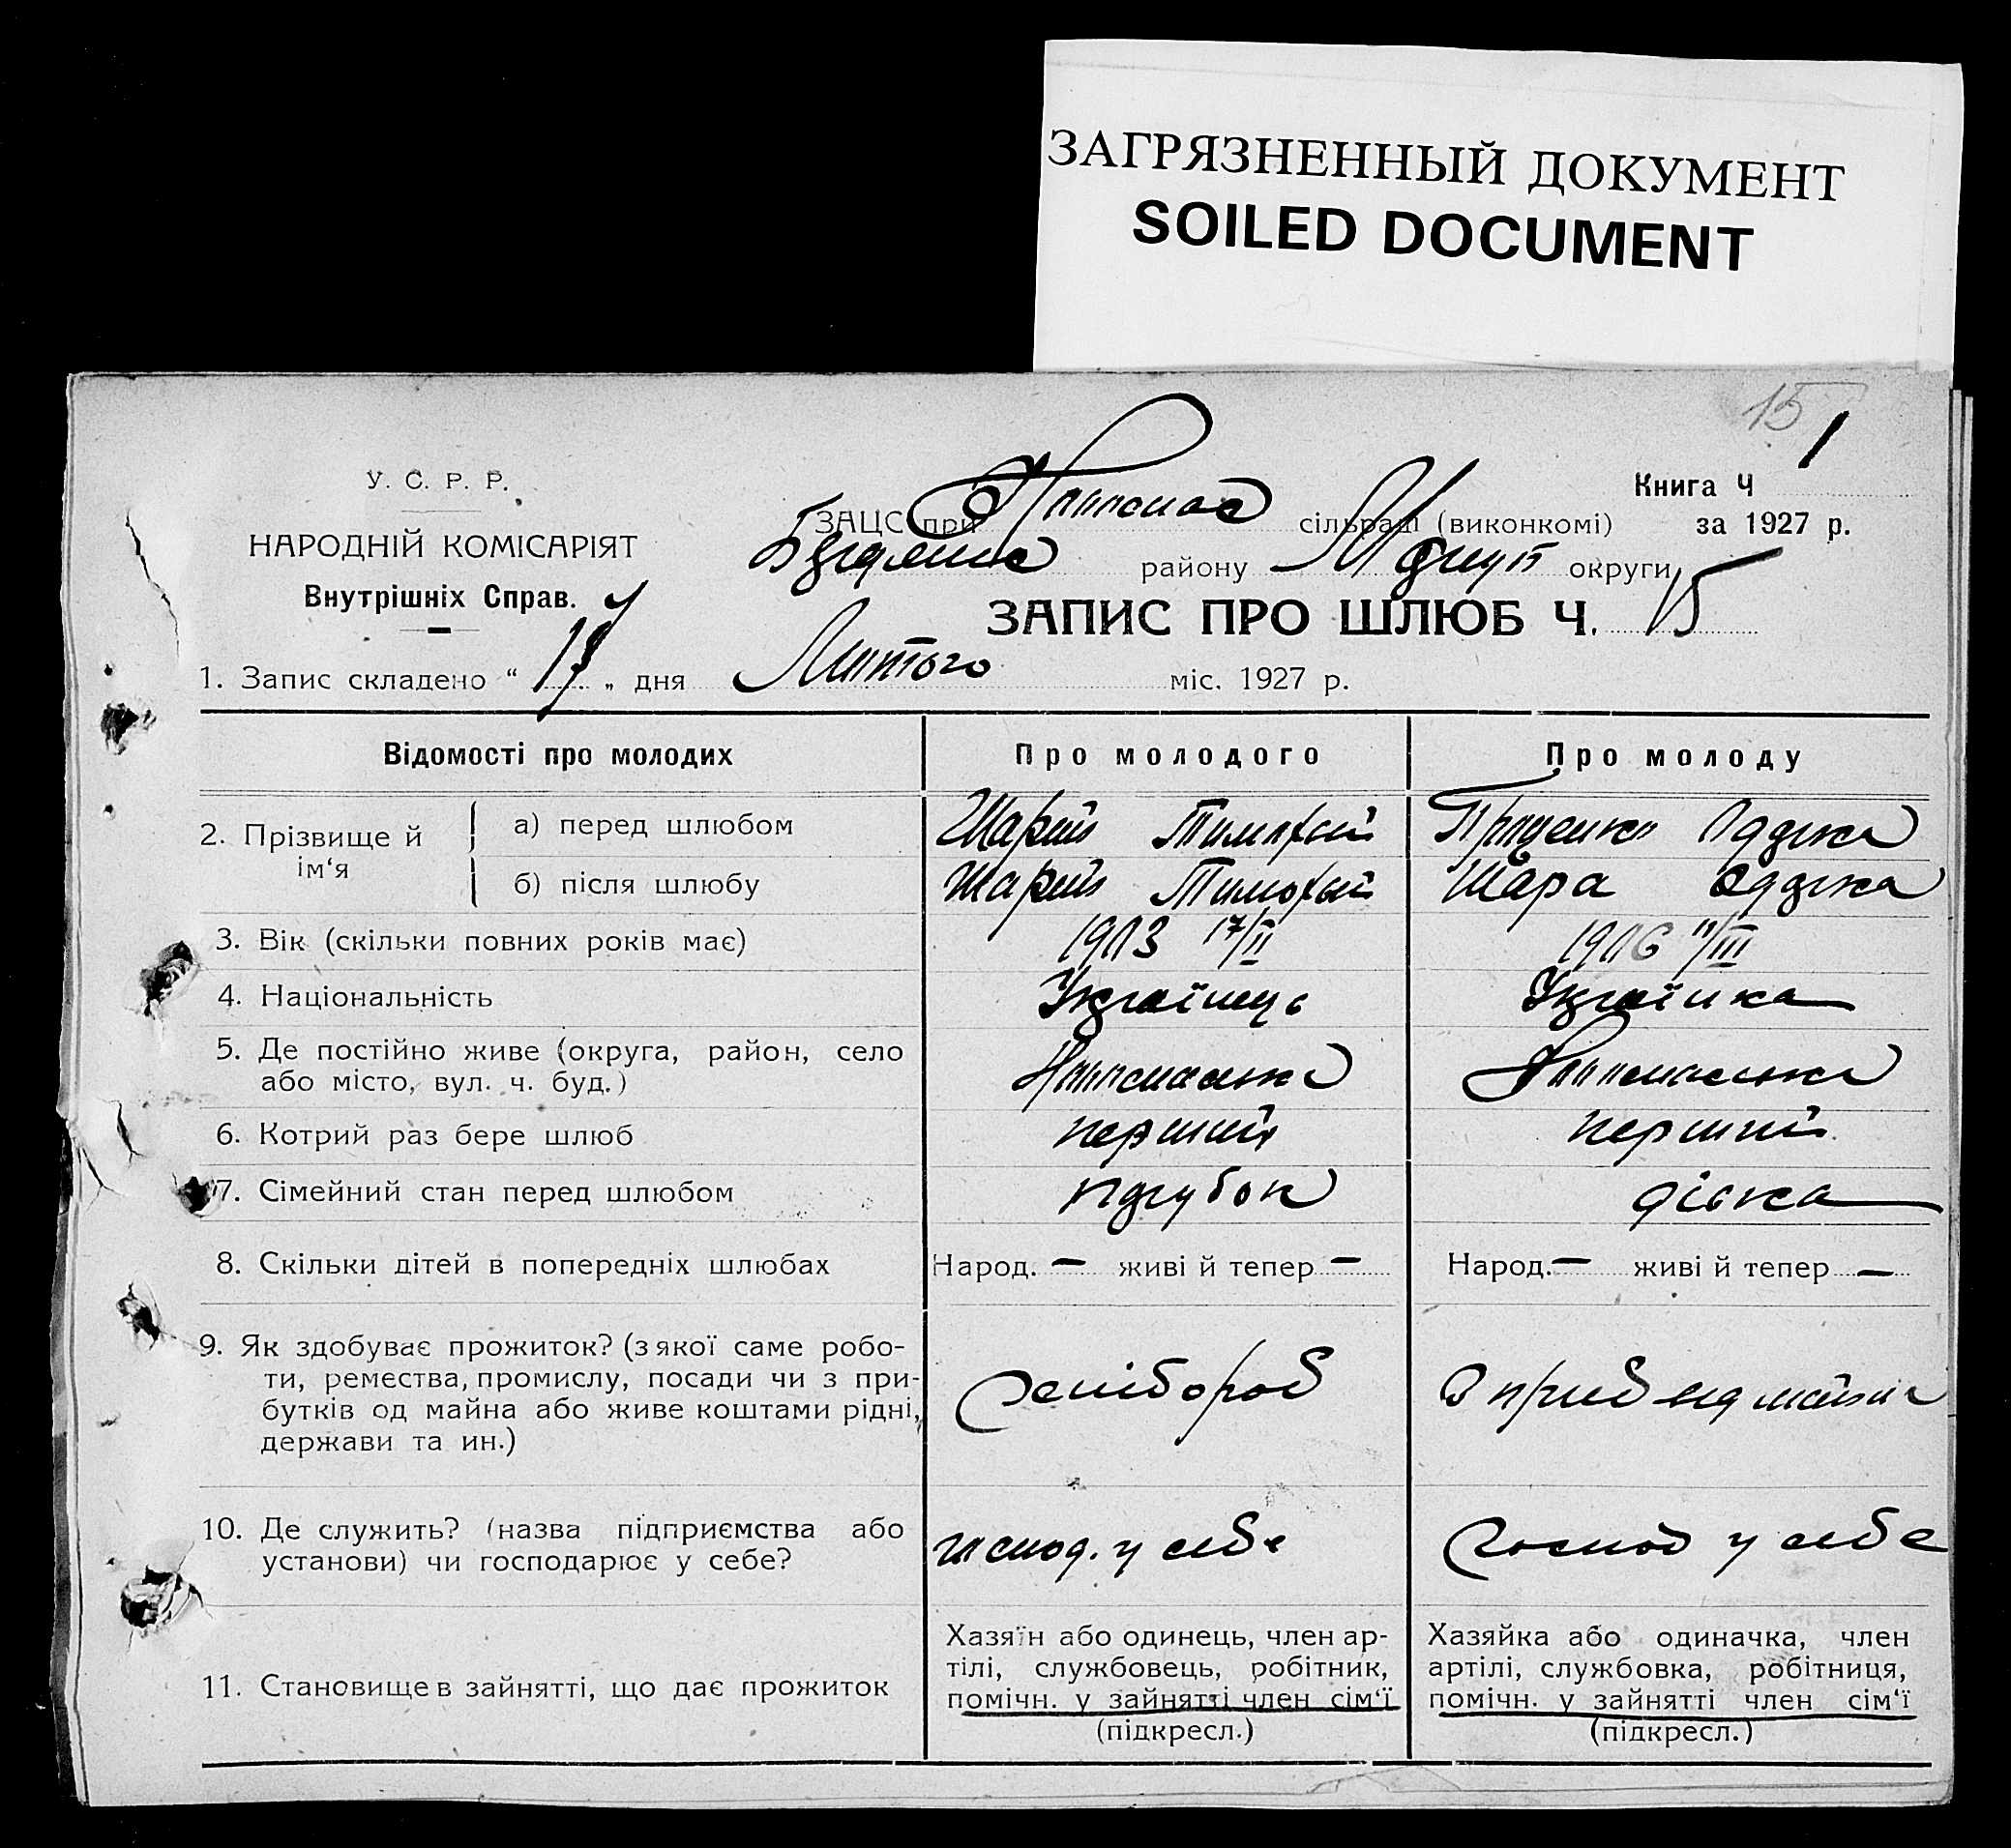 ЗАГРЯЗНЕННЫЙ ДОКУМЕНТ
SOILED DOCUMENT
15
1
У. С. Р. Р.
НАРОДНІЙ КОМІСАРІЯТ
Внутрішніх Справ.
Книга Ч
за 1927 р.
ЗАЦС при сільраді (виконкомі)
району округи
ЗАПИС ПРО ШЛЮБ Ч. 15
1. Запис складено “ 17 „ дня Лютого міс. 1927 р.
Відомості про молодих Про молодого Про молоду
2. Прізвище й ім‘я
а) перед шлюбом Шарий Тимофій Проценко Одарка
б) після шлюбу Шарий Тимофій Шара Одарка
3. Вік (скільки повних років має) 1903 17/II 1906 /III
4. Національність Українець Українка
5. Де постійно живе (округа, район, село
або місто, вул. ч. буд.)
6. Котрий раз бере шлюб перший перший
7. Сімейний стан перед шлюбом парубок дівка
8. Скільки дітей в попередніх шлюбах Народ. — живі й тепер — Народ. — живі й тепер —
9. Як здобуває прожиток? (з якої саме робо-
ти, ремества, промислу, посади чи з при-
бутків од майна або живе коштами рідні,
держави та ин.)
хлібороб
10. Де служить? (назва підприємства або
установи) чи господарює у себе?
господ. у себе Господ у себе
11. Становище в зайнятті, що дає прожиток
Хазяїн або одинець, член ар-
тілі, службовець, робітник,
помічн. у зайнятті член сім‘ї
(підкресл.)
Хазяйка або одиначка, член
артілі, службовка, робітниця,
помічн. у зайнятті член сім‘ї
(підкресл.)